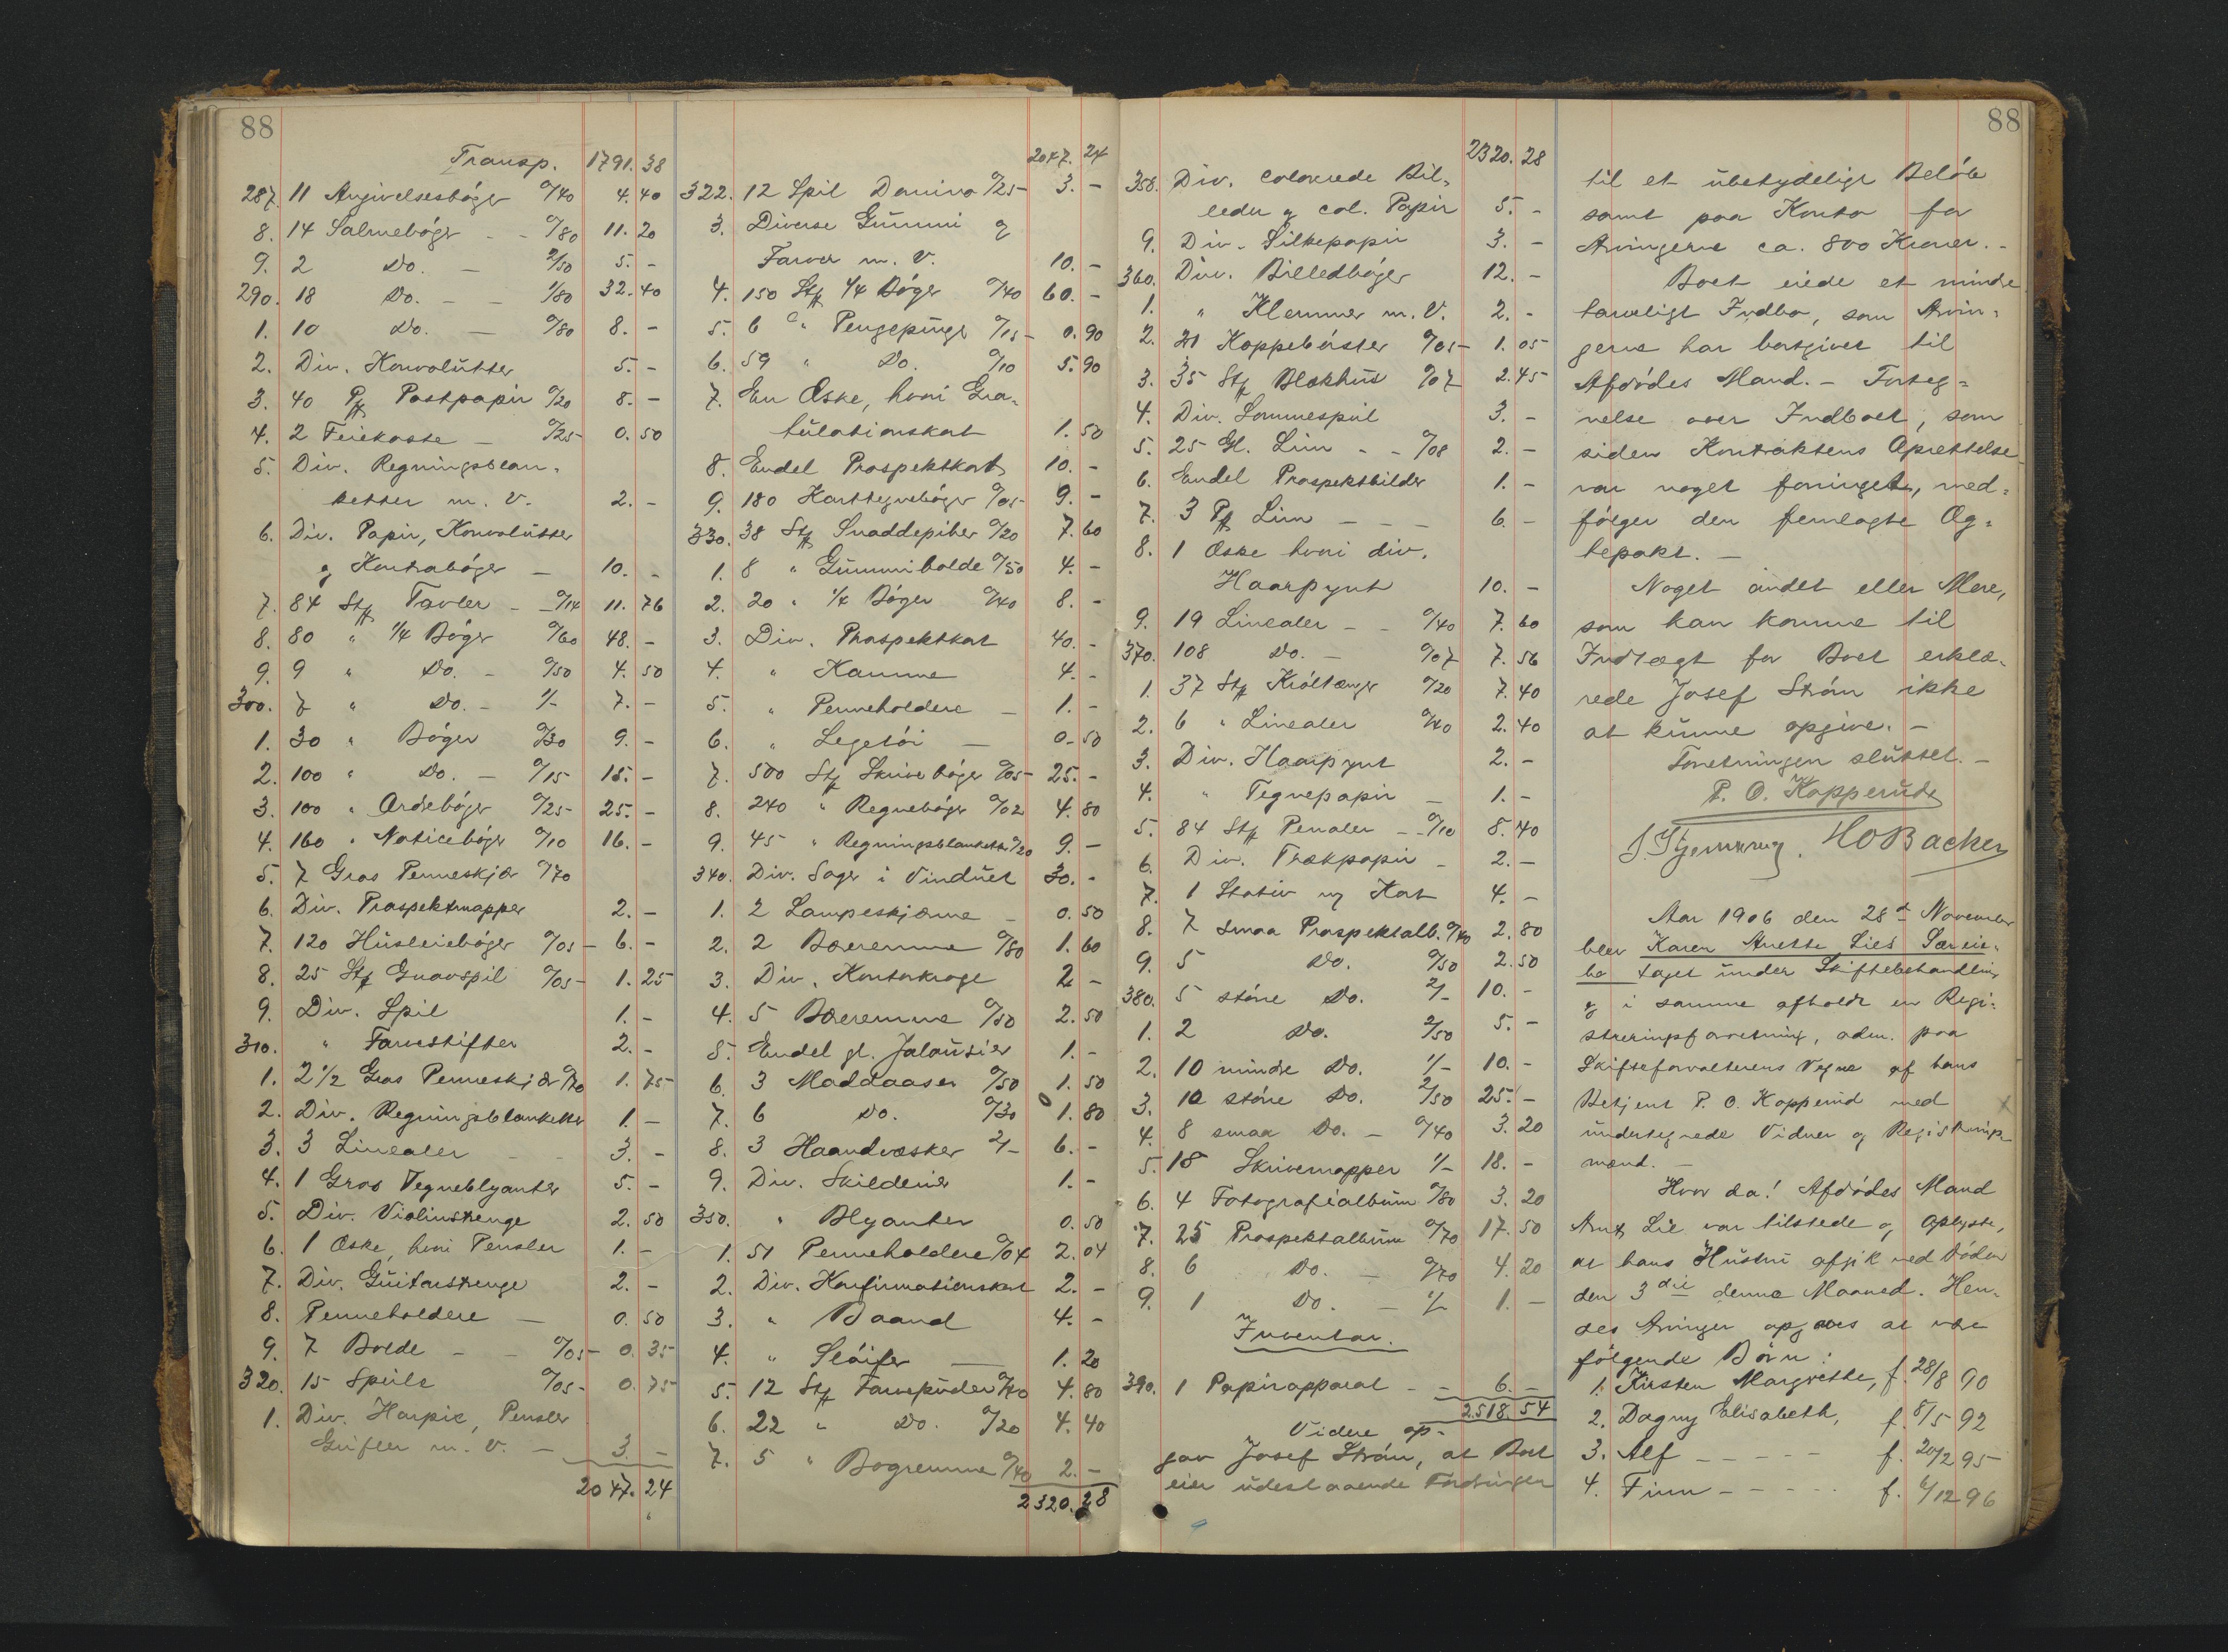 88
Transp. 1791. 38
287. 11 Angivelsesbøger 0/40 4. 40
8. 14 Salmebøger - - 0/80 11. 20
9. 2 Do. - 2/50 5. -
290. 18 Do. - - 1/80 32. 40
1. 10 Do. - 0/80 8. -
2. Div. Konvolutter 5. -
3. 40 Pk Postpapir 0/20 8. -
4. 2 Feiekoste - 0/25 0. 50
5. Div. Regningsblan-
ketter m. V. 2. -
6. Div. Papir, Konvolutter
og Kontrabøger - 10. -
7. 84 Stk Tavler - 0/14 11. 76
8. 80 " 1/4 Bøger 0/60 48. -
9. 9 " Do. - 0/50 4. 50
300. 7 " Do. - 1/- 7. -
1. 30 " Bøger 0/30 9. -
2. 100 " Do. - 0/15 15. -
3. 100 " Ordrebøger 0/25 25. -
4. 160 " Noticebøger 0/10 16. -
5. 7 Gros Penneskjær 0/70
6. Div. Prospektmapper 2. -
7. 120 Husleiebøger 0/05 - 6. -
8. 25 Stk Gnavspil 0/05 - 1. 25
9. Div. Spil 1. -
310. " Farvestifter 2. -
1. 2 1/2 Gros Penneskjær 0/70 1. 75
2. Div. Regningsblanketter 1. -
3. 3 Linealer - - 3. -
4. 1 Gros Tegneblyanter 5. -
5. Div. Violinstrenge 2. 50
6. 1 Æske, hvori Pensler 1. -
7. Div. Guitarstrenge 2. -
8. Penneholdere - 0. 50
9. 7 Bolde - - 0/05 - 0. 35
320. 15 Speile 0/05 - 0. 75
1. Div. Harpix, Pensler
Grifler m. V. - 3. -
2047. 24
2047. 24
322. 12 Spil Domino 0/25 - 3. -
3. Diverse Gummi og
Farver m. V. 10. -
4. 150 Stk 1/4 Bøger 0/40 60. -
5. 6 " Pengepunge 0/15 - 0. 90
6. 59 " Do. 0/10 5. 90
7. En Æske, hvori Gra-
tulationskort 1. 50
8. Endel Prospektkort 10. -
9. 180 Karttegnebøger 0/05 - 9. -
330. 38 Stk Snaddepiber 0/20 7. 60
1. 8 " Gummibolde 0/50 4. -
2. 20 " 1/4 Bøger 0/40 8. -
3. Div. Prospektkort 40. -
4. " Kamme 4. -
5. " Penneholdere - 1. -
6. " Legetøi - 0. 50
7. 500 Stk Skrivebøger 0/05 - 25. -
8. 240 " Regnebøger 0/02 4. 80
9. 45 " Regningsblanketter 0/20 9. -
340. Div. Sager i Vinduet 30. -
1. 2 Lampeskjærme - 0. 50
2. 2 Bæreremme 0/80 1. 60
3. Div. Kontorkroge 2. -
4. 5 Bæreremme 0/50 2. 50
5. Endel gl. Jalousier 1. -
6. 3 Maddaaser 0/50 1. 50
7. 6 Do. 0/30 1. 80
8. 3 Haandvæsker 2/- 6. -
9. Div. Skilderier 1. -
350. " Blyanter 0. 50
1. 51 Penneholdere 0/04 2. 04
2. Div. Konfirmationskort 2. -
3. " Baand 4. -
4. " Sløifer - 1. 20
5. 12 Stk Farvepuder 0/40 4. 80
6. 22 " Do. 0/20 4. 40
7. 5 " Bogremme 0/40 2. -
2320. 28
2320. 28
358. Div. colorerede Bil-
leder og col. Papir 5. -
9. Div. Silkepapir 3. -
360. Div. Billedbøger 12. -
1. " Klemmer m. V. 2. -
2. 21 Koppebørster 0/05 - 1. 05
3. 35 Stk Blækhus 0/07 2. 45
4. Div. Lommespeil 3. -
5. 25 Gl. Lim - - 0/08 2. -
6. Endel Prospektbilder 1. -
7. 3 Pk Lim - - - 6. -
8. 1 Æske hvori div.
Haarpynt 10. -
9. 19 Linealer - - 0/40 7. 60
370. 108 Do. - 0/07 7. 56
1. 37 Stk Krøltænger 0/20 7. 40
2. 6 " Linealer 0/40 2. 40
3. Div. Haarpynt 2. -
4. " Tegnepapir - 1. -
5. 84 Stk Penaler - - 0/10 8. 40
6. Div. Trækpapir - 2. -
7. 1 Stativ og Kort 4. -
8. 7 smaa Prospektalb. 0/40 2. 80
9. 5 Do. 0/50 2. 50
380. 5 større Do. 2/- 10. -
1. 2 Do. 2/50 5. -
2. 10 mindre Do. 1/- 10. -
3. 10 større Do. 2/50 25. -
4. 8 smaa Do. - 0/40 3. 20
5. 18 Skrivemapper 1/- 18. -
6. 4 Fotografialbum 0/80 3. 20
7. 25 Prospektalbum 0/70 17. 50
8. 6 Do. - 0/70 4. 20
9. 1 Do. - 1/- 1. -
Inventar.
390. 1 Papirapparat - - 6. -
2518. 54
Videre op-
gav Josef Strøm, at Boet
eier udestaaende Fordringer
88
til et ubetydeligt Beløb
samt paa Konto for
Arvingerne ca. 800 Kroner. -
Boet eiede et mindre
tarveligt Indbo, som Arvin-
gerne har bortgivet til
Afdødes Mand. - Forteg-
nelse over Indboet, som
siden Kontraktens Oprettelse
var noget foringet, med-
følger den fremlagte Æg-
tepakt. -
Noget andet eller Mere,
som kan komme til
Indtægt for Boet erklæ-
rede Josef Strøm ikke
at kunne opgive. -
Forretningen sluttet. -
P. O. Kopperud
HO Backer
Aar 1906 den 28d November
blev Karen Anette Lies Særeie-
bo taget under Skiftebehandling
og i samme afholdt en Regi-
streringsforretning, adm. paa
Skifteforvalterens Vegne af hans
Betjent P. O. Kopperud med
undertegnede Vidner og Registrerings-
mænd. -
Hvor da! Afdødes Mand
Arnt Lie var tilstede og oplyste,
at hans Hustru afgik ved Døden
den 3die denne Maaned. Hen-
des Arvinger opgaves at være
følgende Børn:
1. Kirsten Margrethe, f. 28/8 90
2. Dagny Elisabeth, f. 8/5 92
3. Alf - - - - - f. 20/2 95
4. Finn - - - - - f. 6/12 96